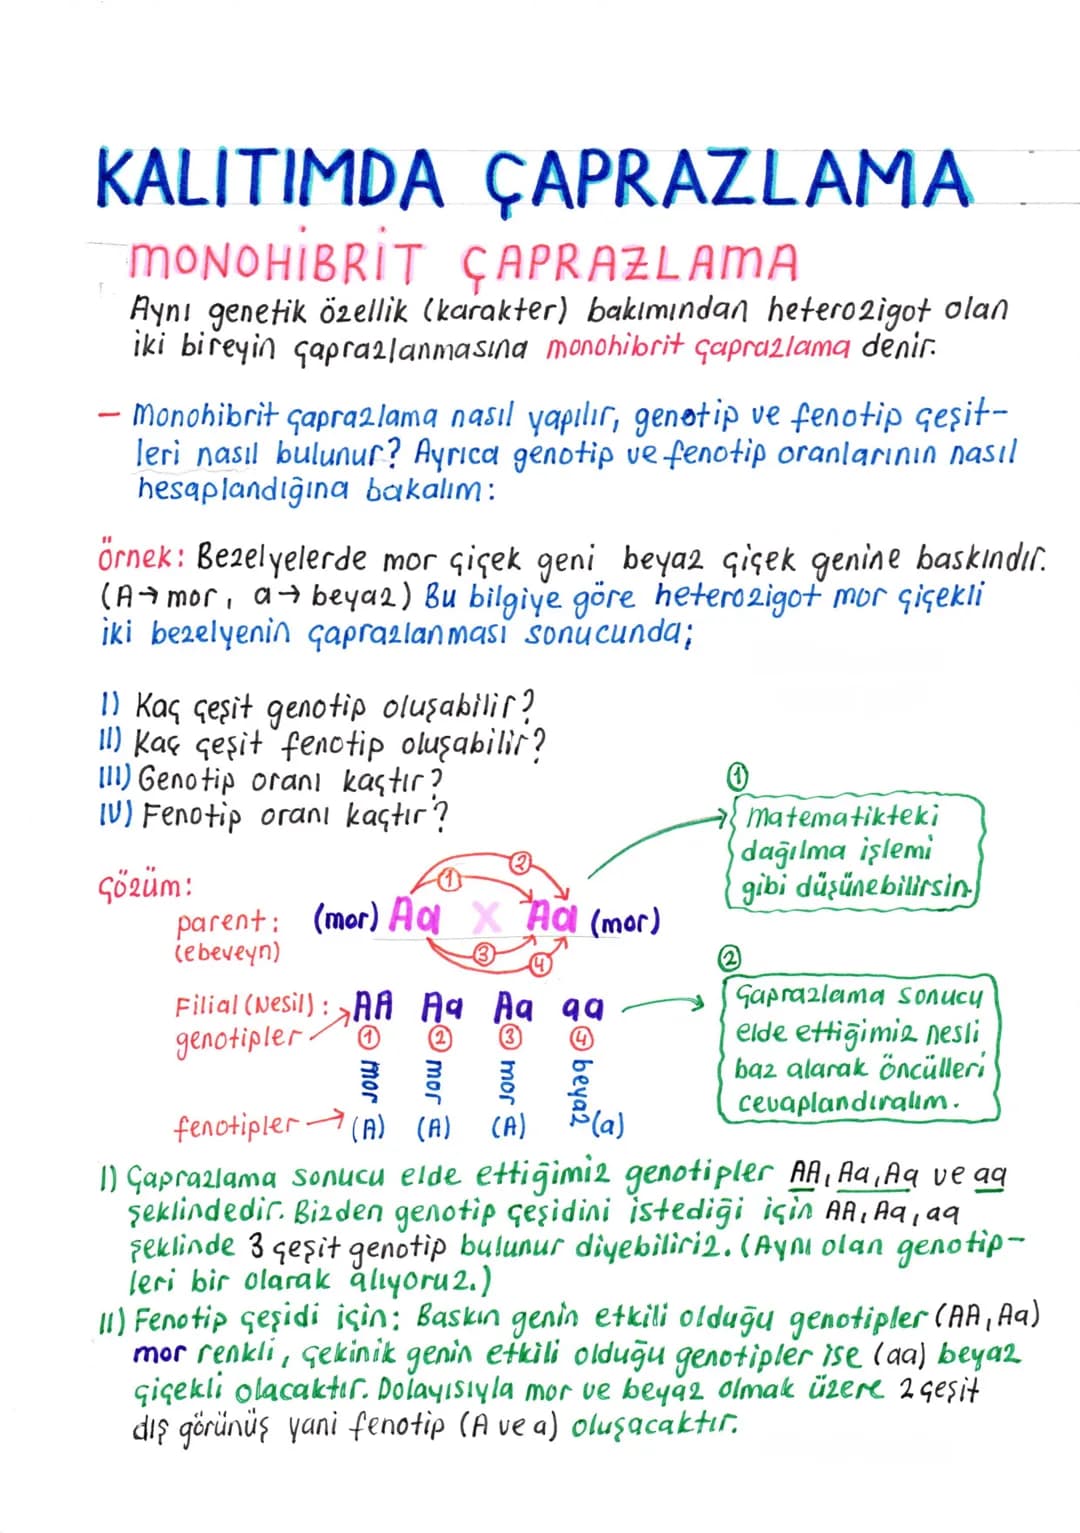 KALITIMDA ÇAPRAZLAMA
MONOHİBRİT ÇAPRAZLAMA
Aynı genetik özellik (karakter) bakımından heterozigot olan
iki bireyin çaprazlanmasına monohibrit çaprazlama denir.
- Monohibrit çaprazlama nasıl yapılır, genotip ve fenotip çeşit-
leri nasıl bulunur? Ayrıca genotip ve fenotip oranlarının nasıl
hesaplandığına bakalım:
Örnek: Bezelyelerde mor çiçek geni beyaz çiçek genine baskındır.
(A→mor, a→beyaz) Bu bilgiye göre heterozigot mor çiçekli
iki bezelyenin çaprazlanması sonucunda;
I) Kaç çeşit genotip oluşabilir?
II) Kaç çeşit fenotip oluşabilir?
III) Genotip oranı kaçtır?
IV) Fenotip oranı kaçtır?
①
Matematikteki
dağılma işlemi
gibi düşünebilirsin.
Çözüm:
① ②
parent: (mor) Aa X Aa (mor)
(ebeveyn)
③ ④
②
Çaprazlama sonucu
elde ettiğimiz nesli
baz alarak öncülleri
cevaplandıralım.
Filial (Nesil): AA Aa Aa aa
genotipler ① ② ③ ④
mor mor mor beyaz
fenotipler → (A) (A) (A) (a)
I) Çaprazlama sonucu elde ettiğimiz genotipler AA, Aa, Aa ve aa
şeklindedir. Bizden genotip çeşidini istediği için AA, Aa, aa
şeklinde 3 çeşit genotip bulunur diyebiliriz. (Aynı olan genotip-
leri bir olarak alıyoruz.)
II) Fenotip çeşidi için: Baskın genin etkili olduğu genotipler (AA, Aa)
mor renkli, çekinik genin etkili olduğu genotipler ise (aa) beyaz
çiçekli olacaktır. Dolayısıyla mor ve beyaz olmak üzere 2 çeşit
dış görünüş yani fenotip (A ve a) oluşacaktır.